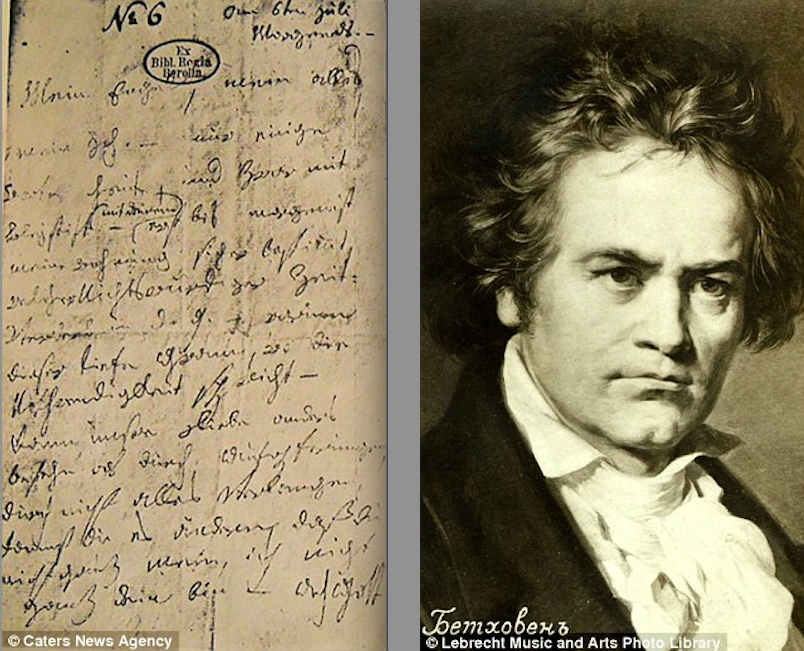 No 6 am 6ten Juli
Morgends. –
Ex
Bibl. Regia
Berolin.
Mein Engel, mein alles,
mein Ich. – nur einige
Worte heute, und zwar mit
Bleystift – (mit deinem) bis morgen ist
meine wohnung sicher bestimt,
welcher Nichtswürdiger Zeit-
in d. g. – warum
dieser tiefe Gram, wo die
Nothwendigkeit spricht –
Kann unsre Liebe anders
bestehn als durch Aufopferungen,
durch nicht alles verlangen,
kannst du es ändern, daß du
nicht ganz mein, ich nicht
ganz dein bin – Ach Gott
© Caters News Agency
Бетховенъ
© Lebrecht Music and Arts Photo Library